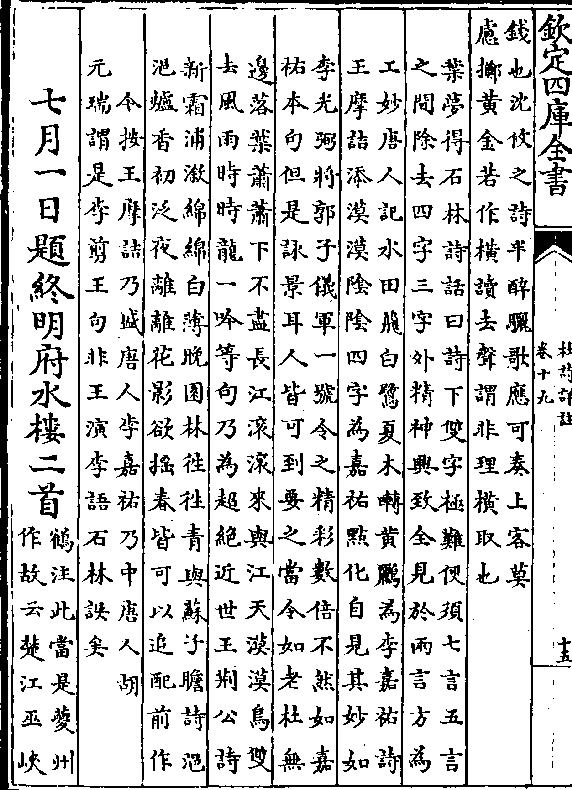 欽定四庫全書
杜詩詳註
卷十九
十五
錢也沈攸之詩半醉驪歌應可奏上客莫
慮擲黃金若作橫讀去聲謂非理橫取也
葉夢得石林詩話曰詩下雙字極難便須七言五言
之間除去四字三字外精神興致全見於兩言方為
工妙唐人記水田飛白鷺夏木轉黃鸝為李嘉祐詩
王摩詰添漠漠陰陰四字為嘉祐點化自見其妙如
李光弼將郭子儀軍一號令之精彩數倍不然如嘉
祐本句但是詠景耳人皆可到要之當令如老杜無
邊落葉蕭蕭下不盡長江滾滾來與江天漠漠鳥雙
去風雨時時龍一吟等句乃為超絕近世王荊公詩
新霜浦漵綿綿白薄晚園林往往青與蘇子瞻詩浥
浥爐香初泛夜離離花影欲搖春皆可以追配前作
今按王摩詰乃盛唐人李嘉祐乃中唐人胡
元瑞謂是李剪王句非王演李語石林誤矣
七月一日題終明府水樓二首
鶴注此當是夔州
作故云楚江巫峽